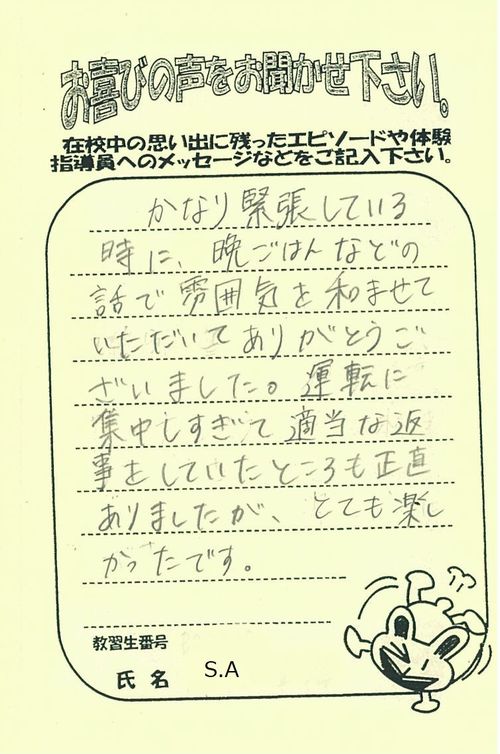 お喜びの声をお聞かせ下さい。
在校中の思い出に残ったエピソードや体験
指導員へのメッセージなどをご記入下さい。
かなり緊張している
時に、晩ごはんなどの
話で雰囲気を和ませて
いただいてありがとうご
ざいました。運転に
集中しすぎて適当な返
事をしていたところも正直
ありましたが、とても楽し
かったです。
教習生番号
氏名 S.A